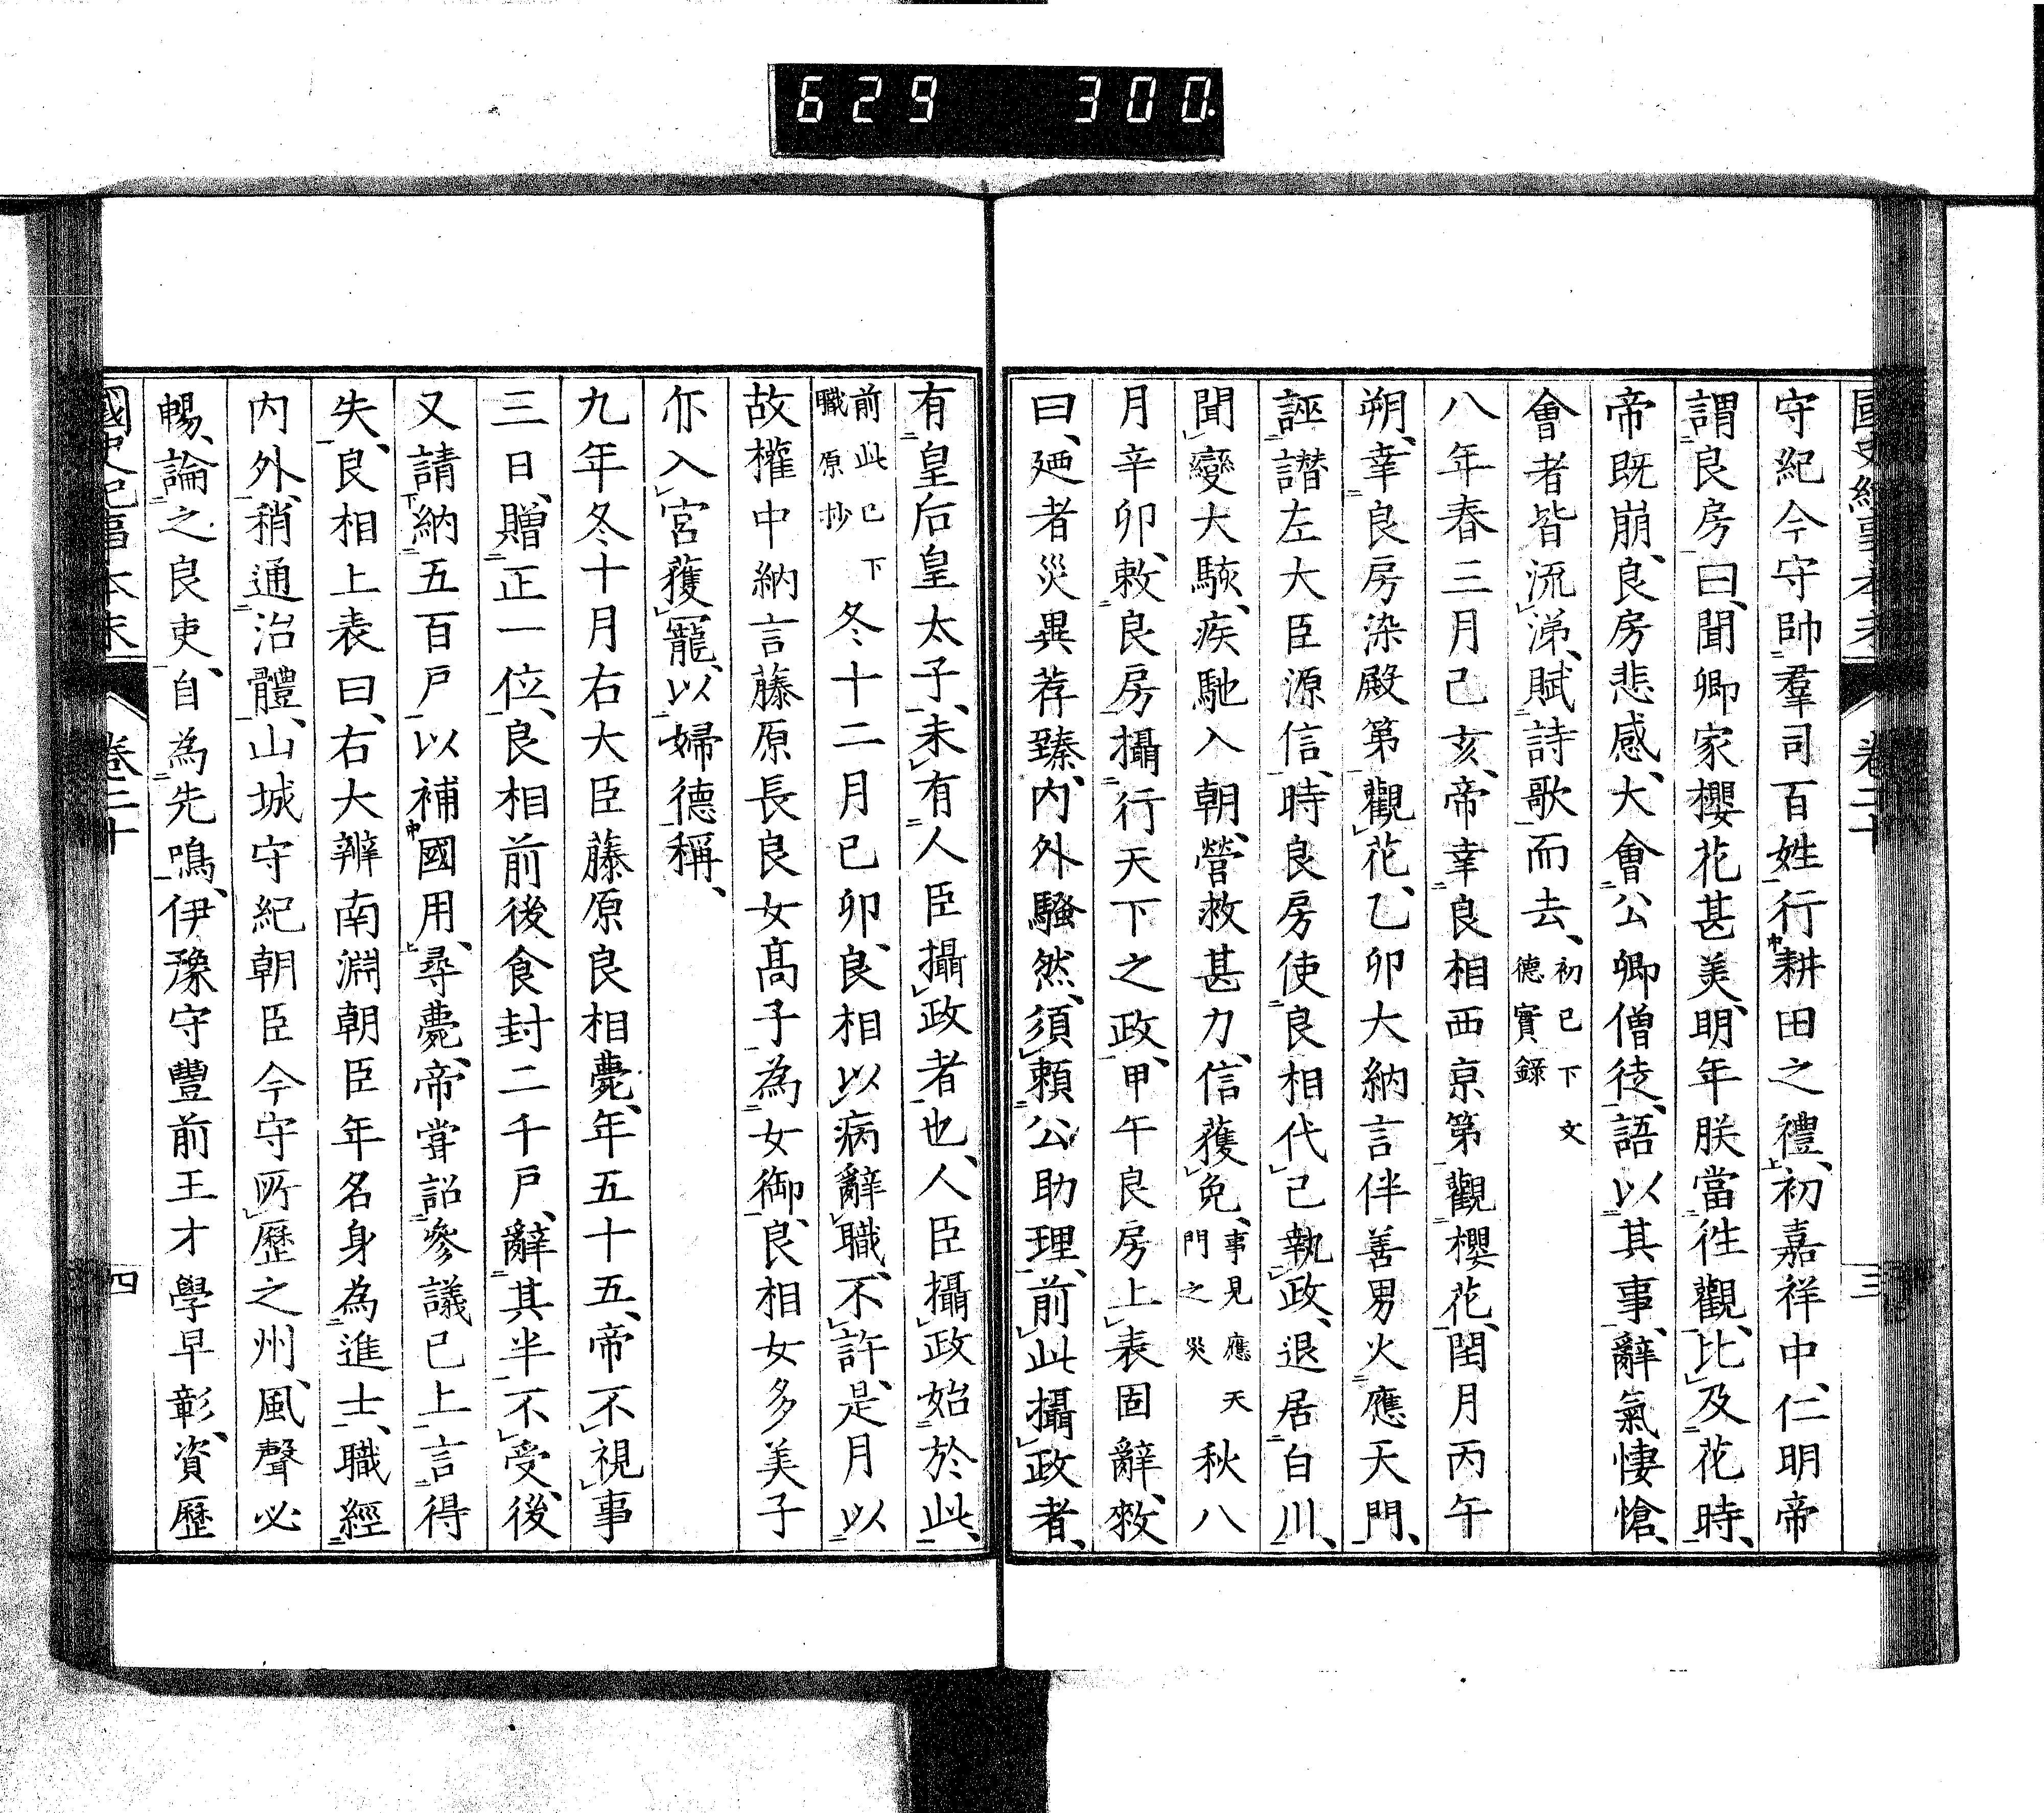 629 300.
國史紀事本末 卷二十 三
守紀今守帥羣司百姓行耕田之禮、初嘉祥中、仁明帝
謂良房曰、聞卿家櫻花甚美、明年朕當徃觀、比及花時、
帝既崩、良房悲感、大會公卿僧徒、語以其事、辭氣悽愴、
會者皆流涕、賦詩歌而去、初已下文德實錄
八年春三月己亥、帝幸良相西京第觀櫻花、閏月丙午
朔、幸良房染殿第觀花、乙卯大納言伴善男火應天門、
誣譛左大臣源信、時良房使良相代己執政、退居白川、
聞變大駭、疾馳入朝、營救甚力、信獲免、事見應天門之災 秋八
月辛卯、敕良房攝行天下之政、甲午良房上表固辭、敕
曰、廼者災異荐臻、内外騷然、須頼公助理、前此攝政者、
有皇后皇太子、未有人臣攝政者也、人臣攝政始於此、
前此已下職原抄 冬十二月己卯、良相以病辭職、不許、是月以
故權中納言藤原長良女高子為女御、良相女多美子
亦入宮獲寵、以婦德稱、
九年冬十月右大臣藤原良相薨、年五十五、帝不視事
三日、贈正一位、良相前後食封二千戸、辭其半不受、後
又請納五百戸以補國用、尋薨、帝甞詔參議已上言得
失、良相上表曰、右大辨南淵朝臣年名身為進士、職經
内外、稍通治體、山城守紀朝臣今守所歷之州、風聲必
暢、論之良吏、自為先鳴、伊豫守豐前王才學早彰、資歷
國史紀事本末 卷二十 四